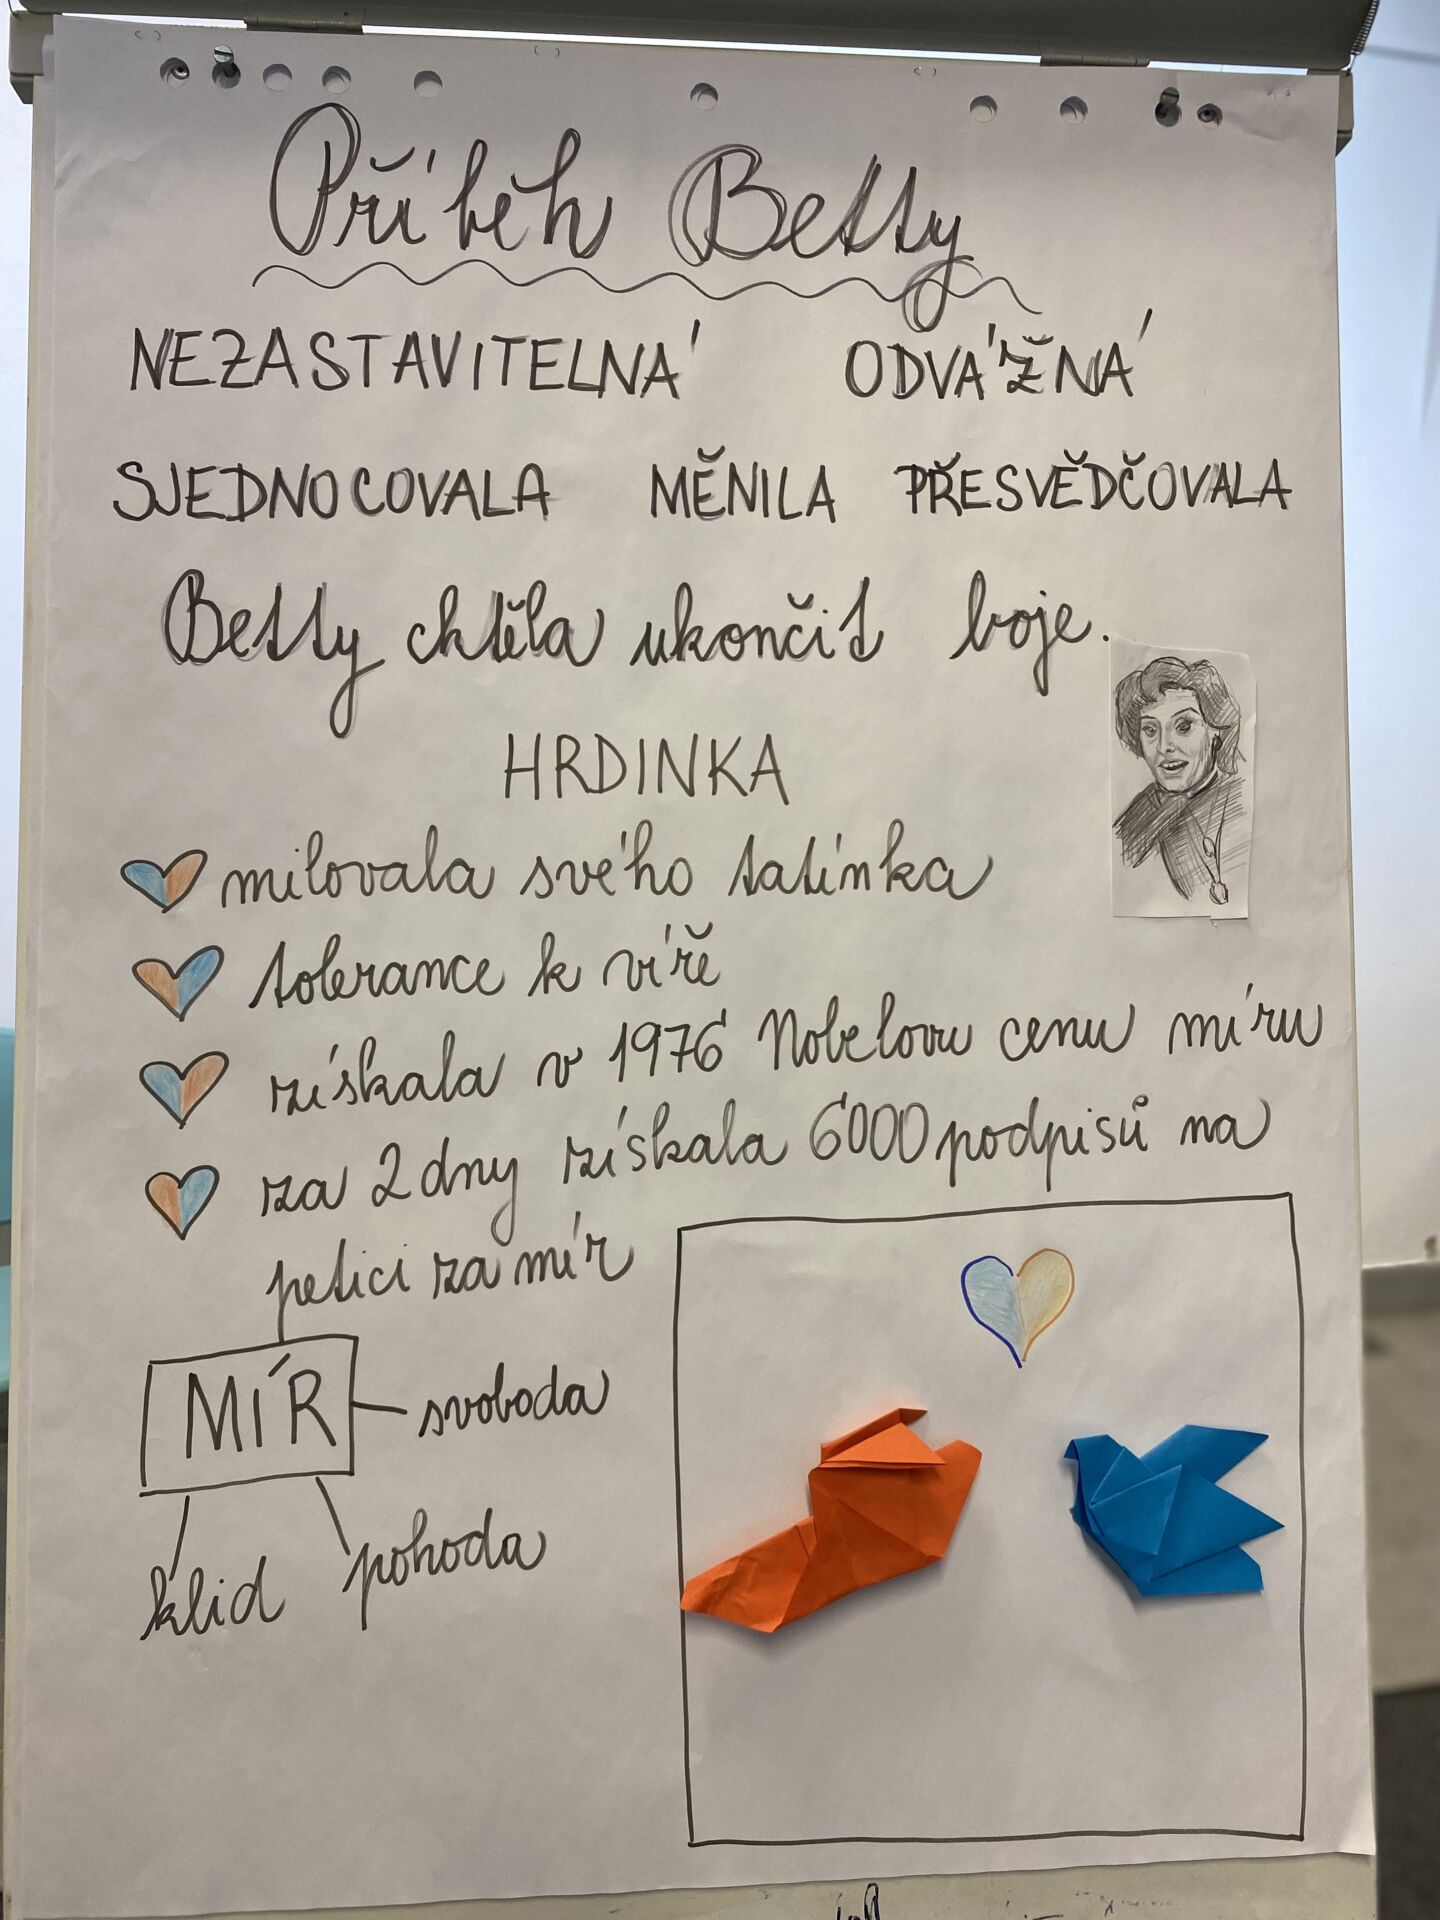 Příběh Betty
NEZASTAVITELNÁ ODVÁŽNÁ
SJEDNOCOVALA MĚNILA PŘESVĚDČOVALA
Betty chtěla ukončit boje.
HRDINKA
milovala svého tatínka
tolerance k víře
získala v 1976 Nobelovu cenu míru
za 2 dny získala 6000 podpisů na
petici za mír
MÍR
svoboda
klid pohoda